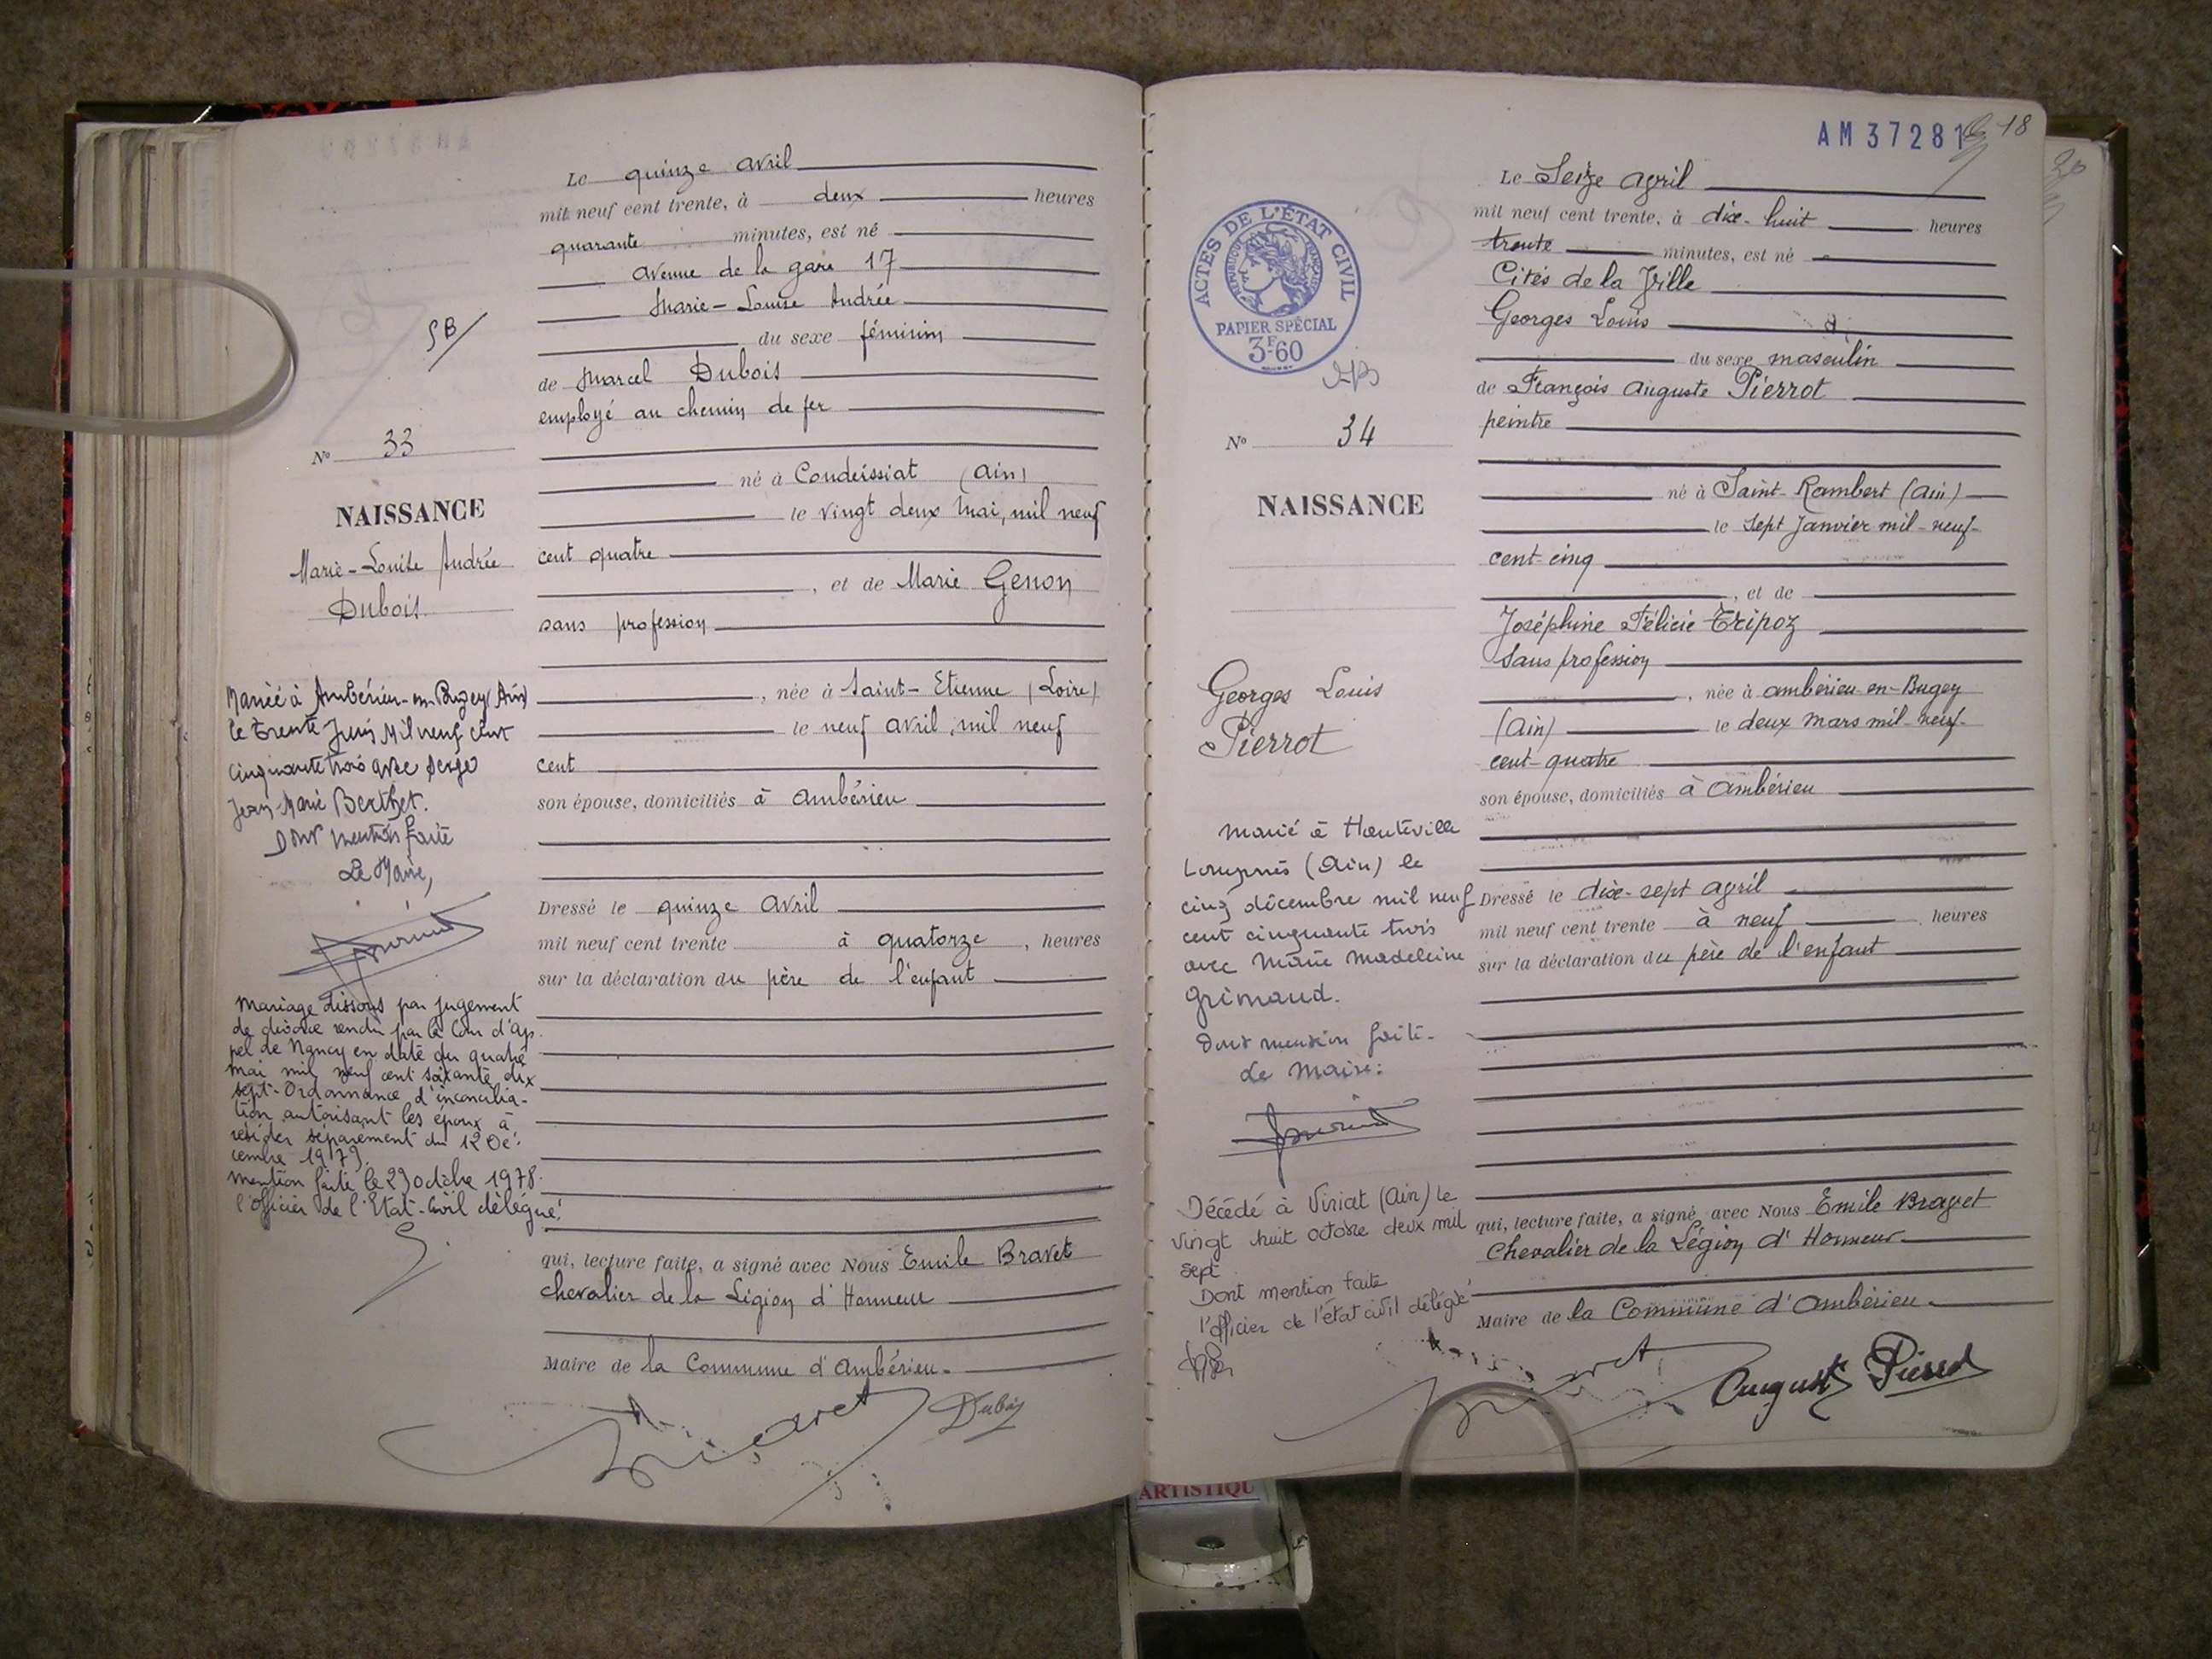 Le quinze avril
mil neuf cent trente, à deux heures
quarante minutes, est né
avenue de la gare 17
Marie-Louise Andrée
du sexe féminin
de Marcel Dubois
employé au chemin de fer
né à Condeissiat (Ain)
le vingt deux Mai, mil neuf
cent quatre
, et de Marie Genon
sans profession
, née à Saint-Etienne (Loire)
le neuf avril, mil neuf
cent
son épouse, domiciliés à Ambérieu
Dressé le quinze avril
mil neuf cent trente à quatorze, heures
sur la déclaration du père de l'enfant
qui, lecture faite, a signé avec Nous Emile Bravet
chevalier de la Légion d'Honneur
Maire de la Commune d'Ambérieu.
Bravet
Dubois
SB
No 33
NAISSANCE
Marie-Louise Andrée
Dubois
Mariée à Ambérieu-en-Bugey (Ain)
le trente Juin Mil neuf cent
cinquante trois avec Serge
Jean Marie Berthet.
Dont mention faite
Le Maire,
Mariage dissous par jugement
de divorce rendu par la Cour d'ap-
pel de Nancy en date du quatre
mai mil neuf cent soixante dix
sept. Ordonnance d'inconcilia-
tion autorisant les époux à
résider séparément du 12 Dé-
cembre 1973.
mention faite le 23 octobre 1978.
l'officier de l'Etat-Civil délégué:
AM 37281
18
20
Le Seize avril
mil neuf cent trente, à dix-huit heures
trente minutes, est né
Cités de la Ville
Georges Louis
du sexe masculin
de François Auguste Pierrot
peintre
né à Saint-Rambert (Ain)
le sept Janvier mil-neuf-
cent-cinq
, et de
Joséphine Félicie Tripoz
Sans profession
, née à Ambérieu-en-Bugey
(Ain) le deux mars mil-neuf-
cent-quatre
son épouse, domiciliés à Ambérieu
Dressé le dix-sept avril
mil neuf cent trente à neuf heures
sur la déclaration du père de l'enfant
qui, lecture faite, a signé avec Nous Emile Bravet
Chevalier de la Légion d'Honneur
Maire de la Commune d'Ambérieu.
Bravet
Auguste Pierrot
ACTES DE L'ÉTAT CIVIL
RÉPUBLIQUE FRANÇAISE
PAPIER SPÉCIAL
3F60
No 34
NAISSANCE
Georges Louis
Pierrot
Marié à Hauteville
Lompnès (Ain) le
cinq décembre mil neuf
cent cinquante trois
avec Marie Madeleine
Grimaud.
Dont mention faite.
Le Maire:
Décédé à Viriat (Ain) le
vingt huit octobre deux mil
sept
Dont mention faite
l'officier de l'état civil délégué
ARTISTIQU